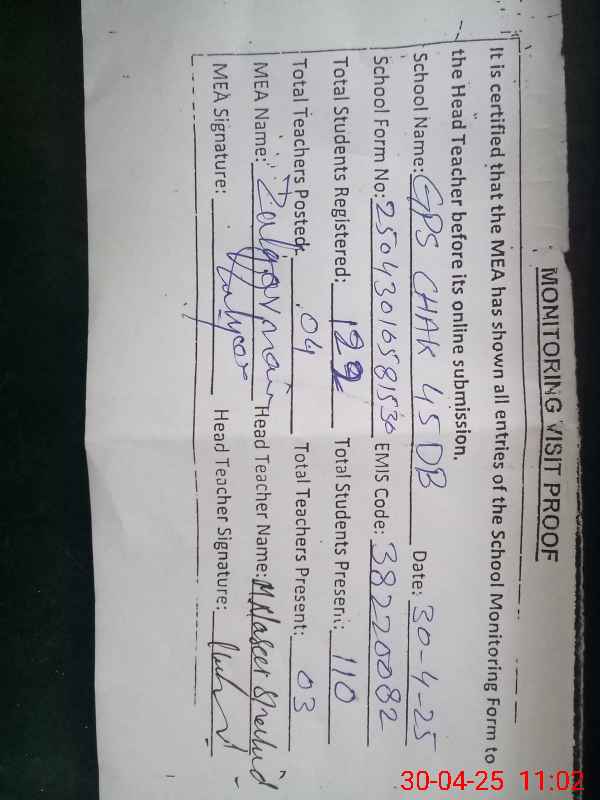 MONITORING VISIT PROOF
It is certified that the MEA has shown all entries of the School Monitoring Form to
the Head Teacher before its online submission.
School Name: GPS CHAK 45 DB Date: 30-4-25
School Form No: 25043016581530 EMIS Code: 38220082
Total Students Registered: 122 Total Students Present: 110
Total Teachers Posted: 04 Total Teachers Present: 03
MEA Name: Head Teacher Name: M Naseer
MEA Signature: Head Teacher Signature:
30-04-25 11:02